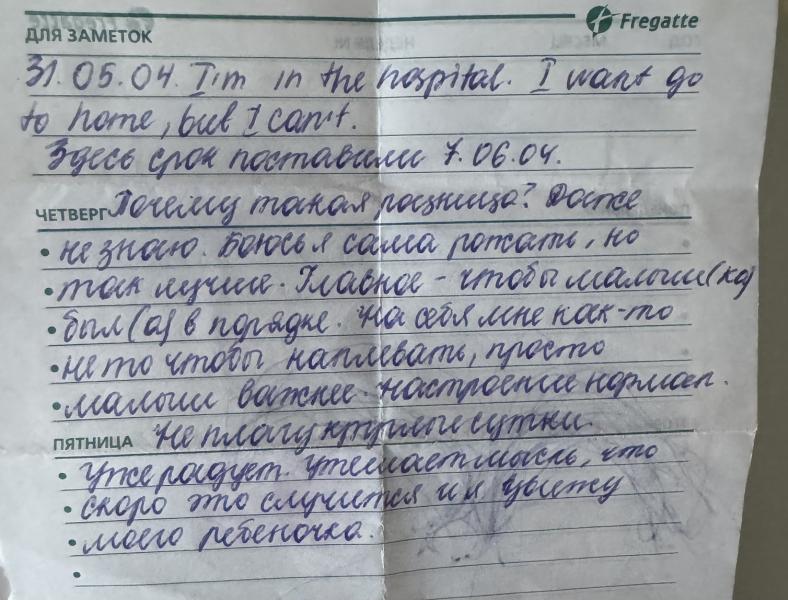 Fregatte
ДЛЯ ЗАМЕТОК
31.05.04. I'm in the hospital. I want go
to home, but I can't.
Здесь срок поставили 7.06.04.
ЧЕТВЕРГ Почему такая разница? Даже
не знаю. Боюсь я сама рожать, но
так лучше. Главное - чтобы малыш(ка)
был(а) в порядке. На себя мне как-то
не то чтобы наплевать, просто
малыш важнее. Настроение нормал.
ПЯТНИЦА Не плачу круглые сутки.
Уже радует. Утешает мысль, что
скоро это случится и я увижу
моего ребеночка.